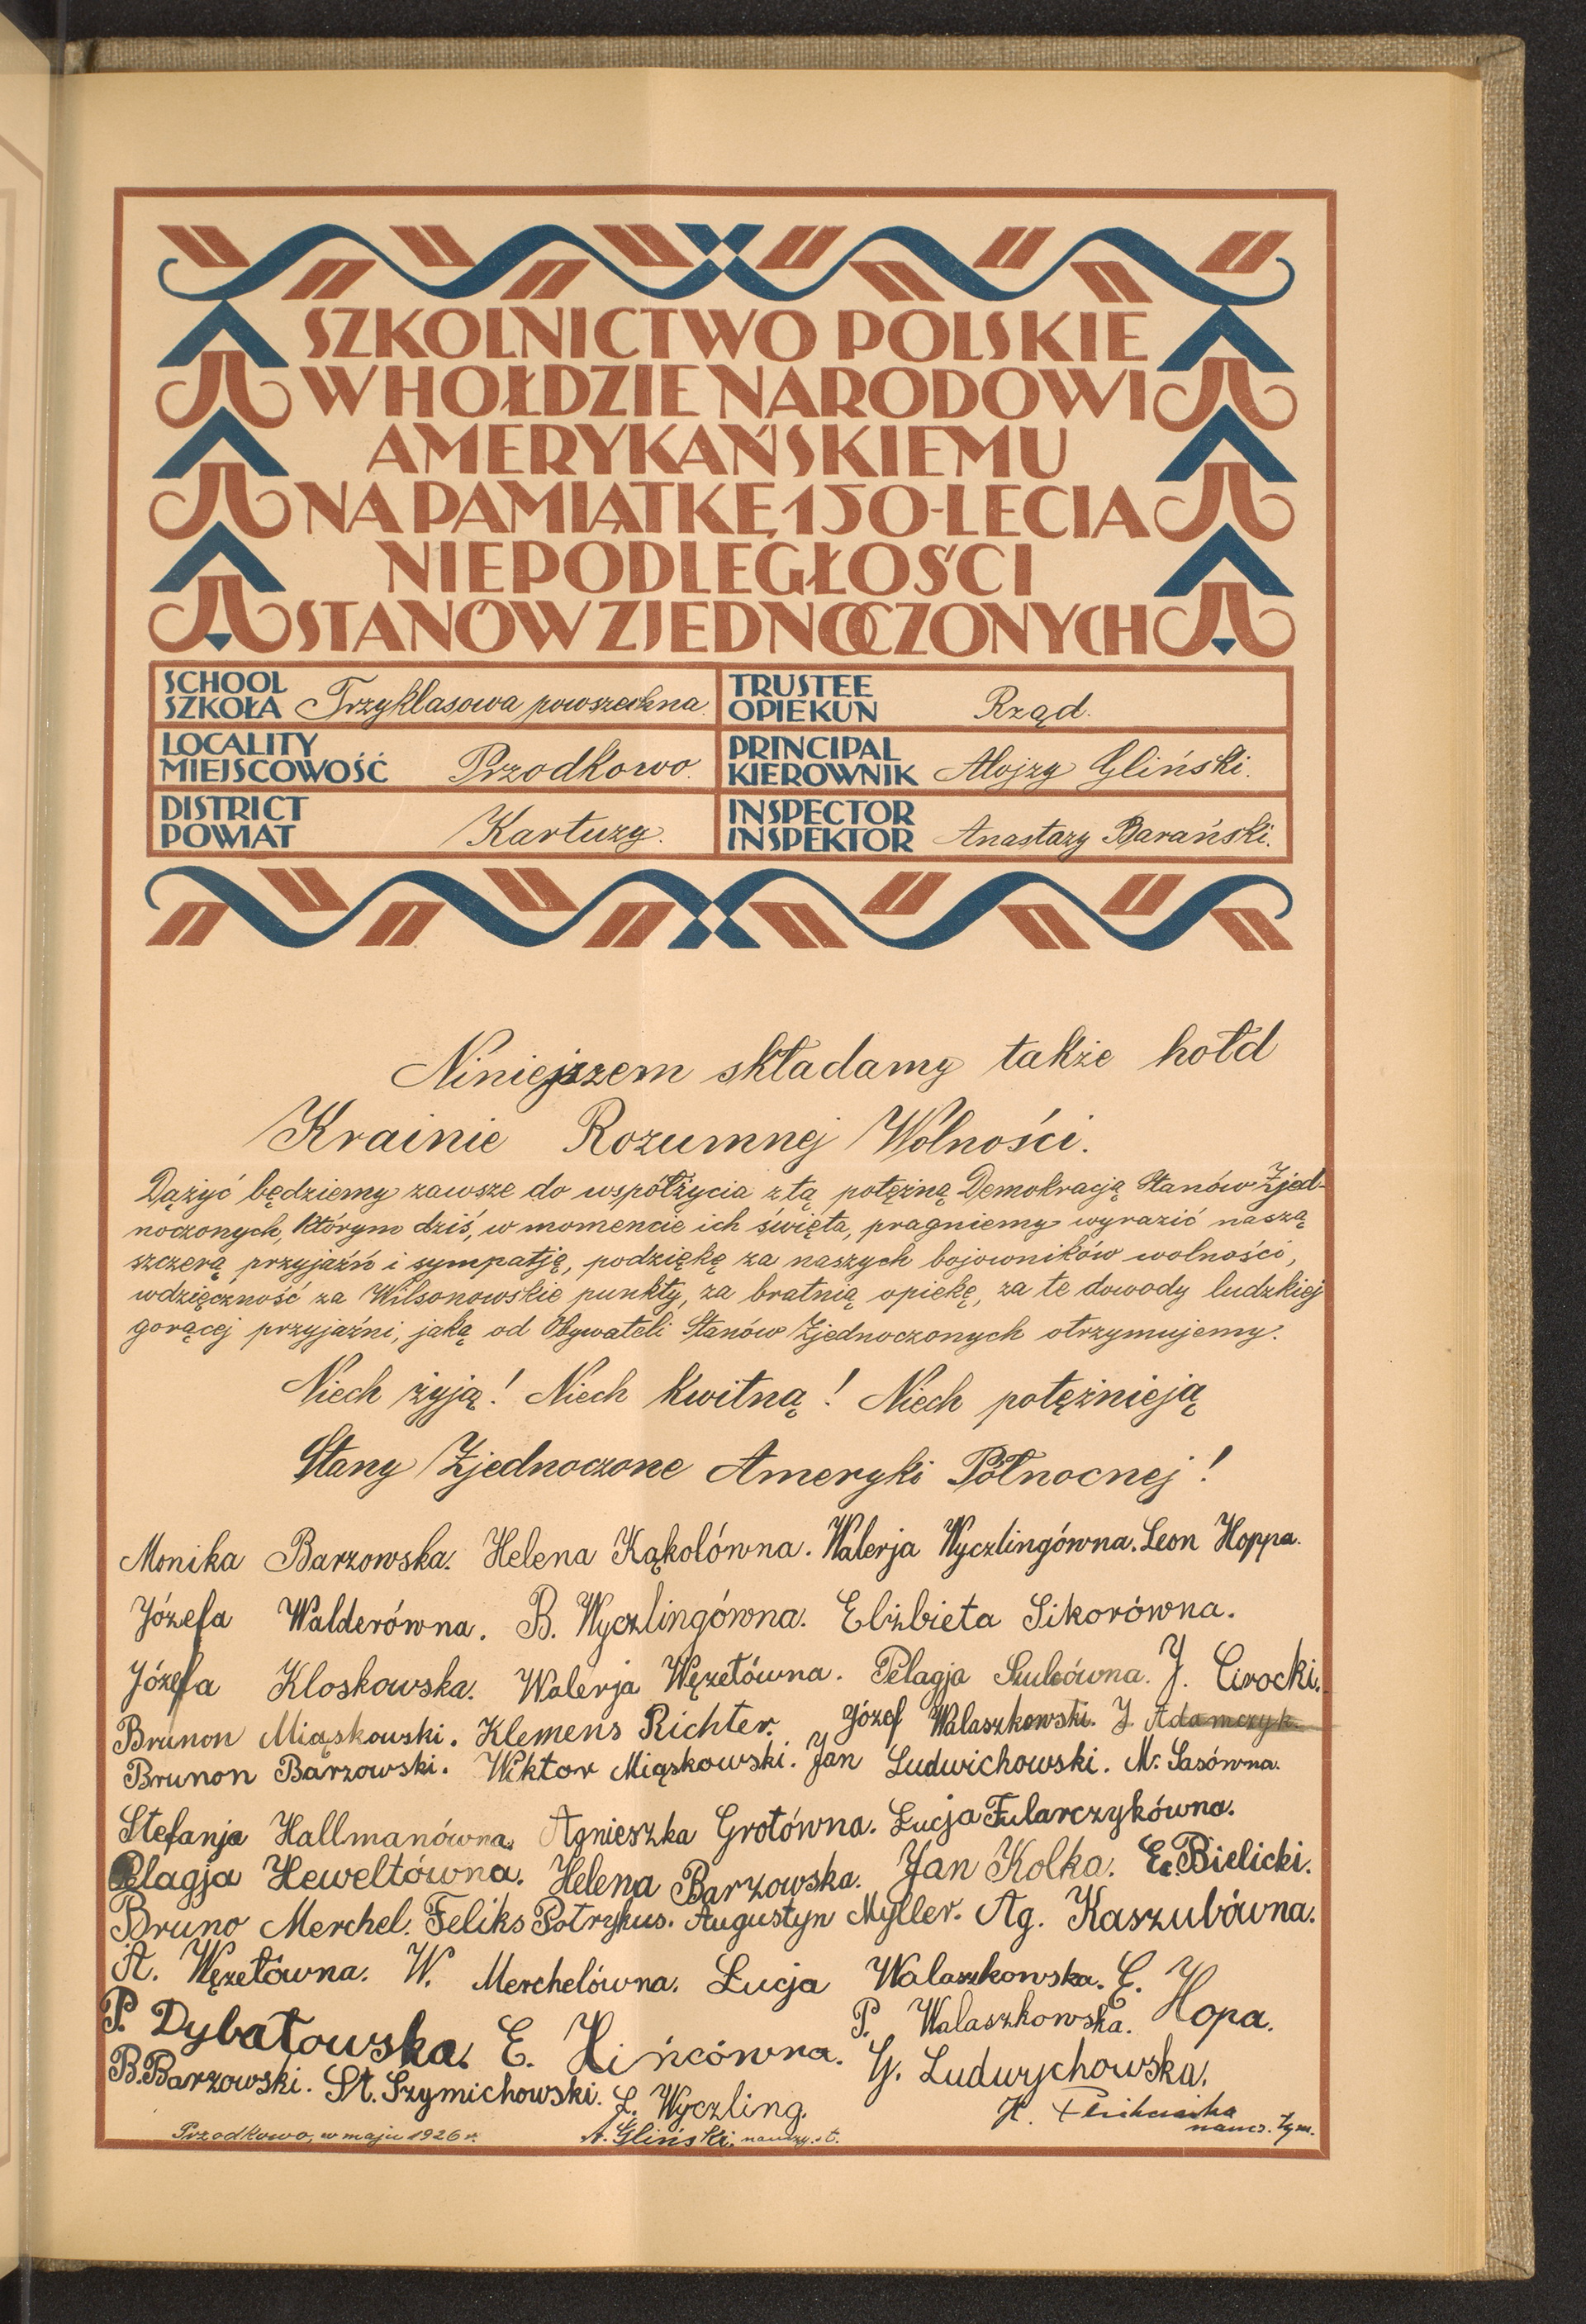 SZKOLNICTWO POLSKIE
W HOŁDZIE NARODOWI
AMERYKAŃSKIEMU
NA PAMIĄTKĘ 150-LECIA
NIEPODLEGŁOŚCI
STANÓW ZJEDNOCZONYCH
SCHOOL
SZKOŁA Trzyklasowa powszechna.
TRUSTEE
OPIEKUN Rząd.
LOCALITY
MIEJSCOWOŚĆ Przodkowo.
PRINCIPAL
KIEROWNIK Alojzy Gliński.
DISTRICT
POWIAT Kartuzy.
INSPECTOR
INSPEKTOR Anastazy Barański.
Niniejszem składamy także hołd
Krainie Rozumnej Wolności.
Dążyć będziemy zawsze do współżycia z tą potężną Demokracją Stanów Zjed-
noczonych, którym dziś, w momencie ich święta, pragniemy wyrazić naszą
szczerą przyjaźń i sympatją, podziękę za naszych bojowników wolności,
wdzięczność za Wilsonowskie punkty, za bratnią opiekę, za te dowody ludzkiej
gorącej przyjaźni, jaką od Obywateli Stanów Zjednoczonych otrzymujemy.
Niech żyją! Niech kwitną! Niech potężnieją
Stany Zjednoczone Ameryki Północnej!
Monika Barzowska. Helena Kąkolówna. Walerja Wyczlingówna. Leon Hoppa.
Józefa Walderówna. B. Wyczlingówna. Elżbieta Sikorówna.
Józefa Kloskowska. Walerja Węzełówna. Pelagja Szulcówna. J. Cirocki.
Brunon Miąskowski. Klemens Richter. Józef Walaszkowski. J. Adamczyk.
Brunon Barzowski. Wiktor Miąskowski. Jan Ludwichowski. M. Sasówna.
Stefanja Hallmanówna. Agnieszka Grotówna. Łucja Fularczykówna.
Pelagja Heweltówna. Helena Barzowska. Jan Kolka. E. Bielicki.
Bruno Merchel. Feliks Potrykus. Augustyn Myller. Ag. Kaszubówna.
A. Węzełówna. W. Merchelówna. Łucja Walaszkowska. E. Hopa.
P. Dybałowska. E. Hińcówna. P. Walaszkowska.
B. Barzowski. St. Szymichowski. Ł. Wyczling. G. Ludwychowska.
Przodkowo, w maju 1926 r. A. Gliński, nauczy. st. H. naucz. tym.